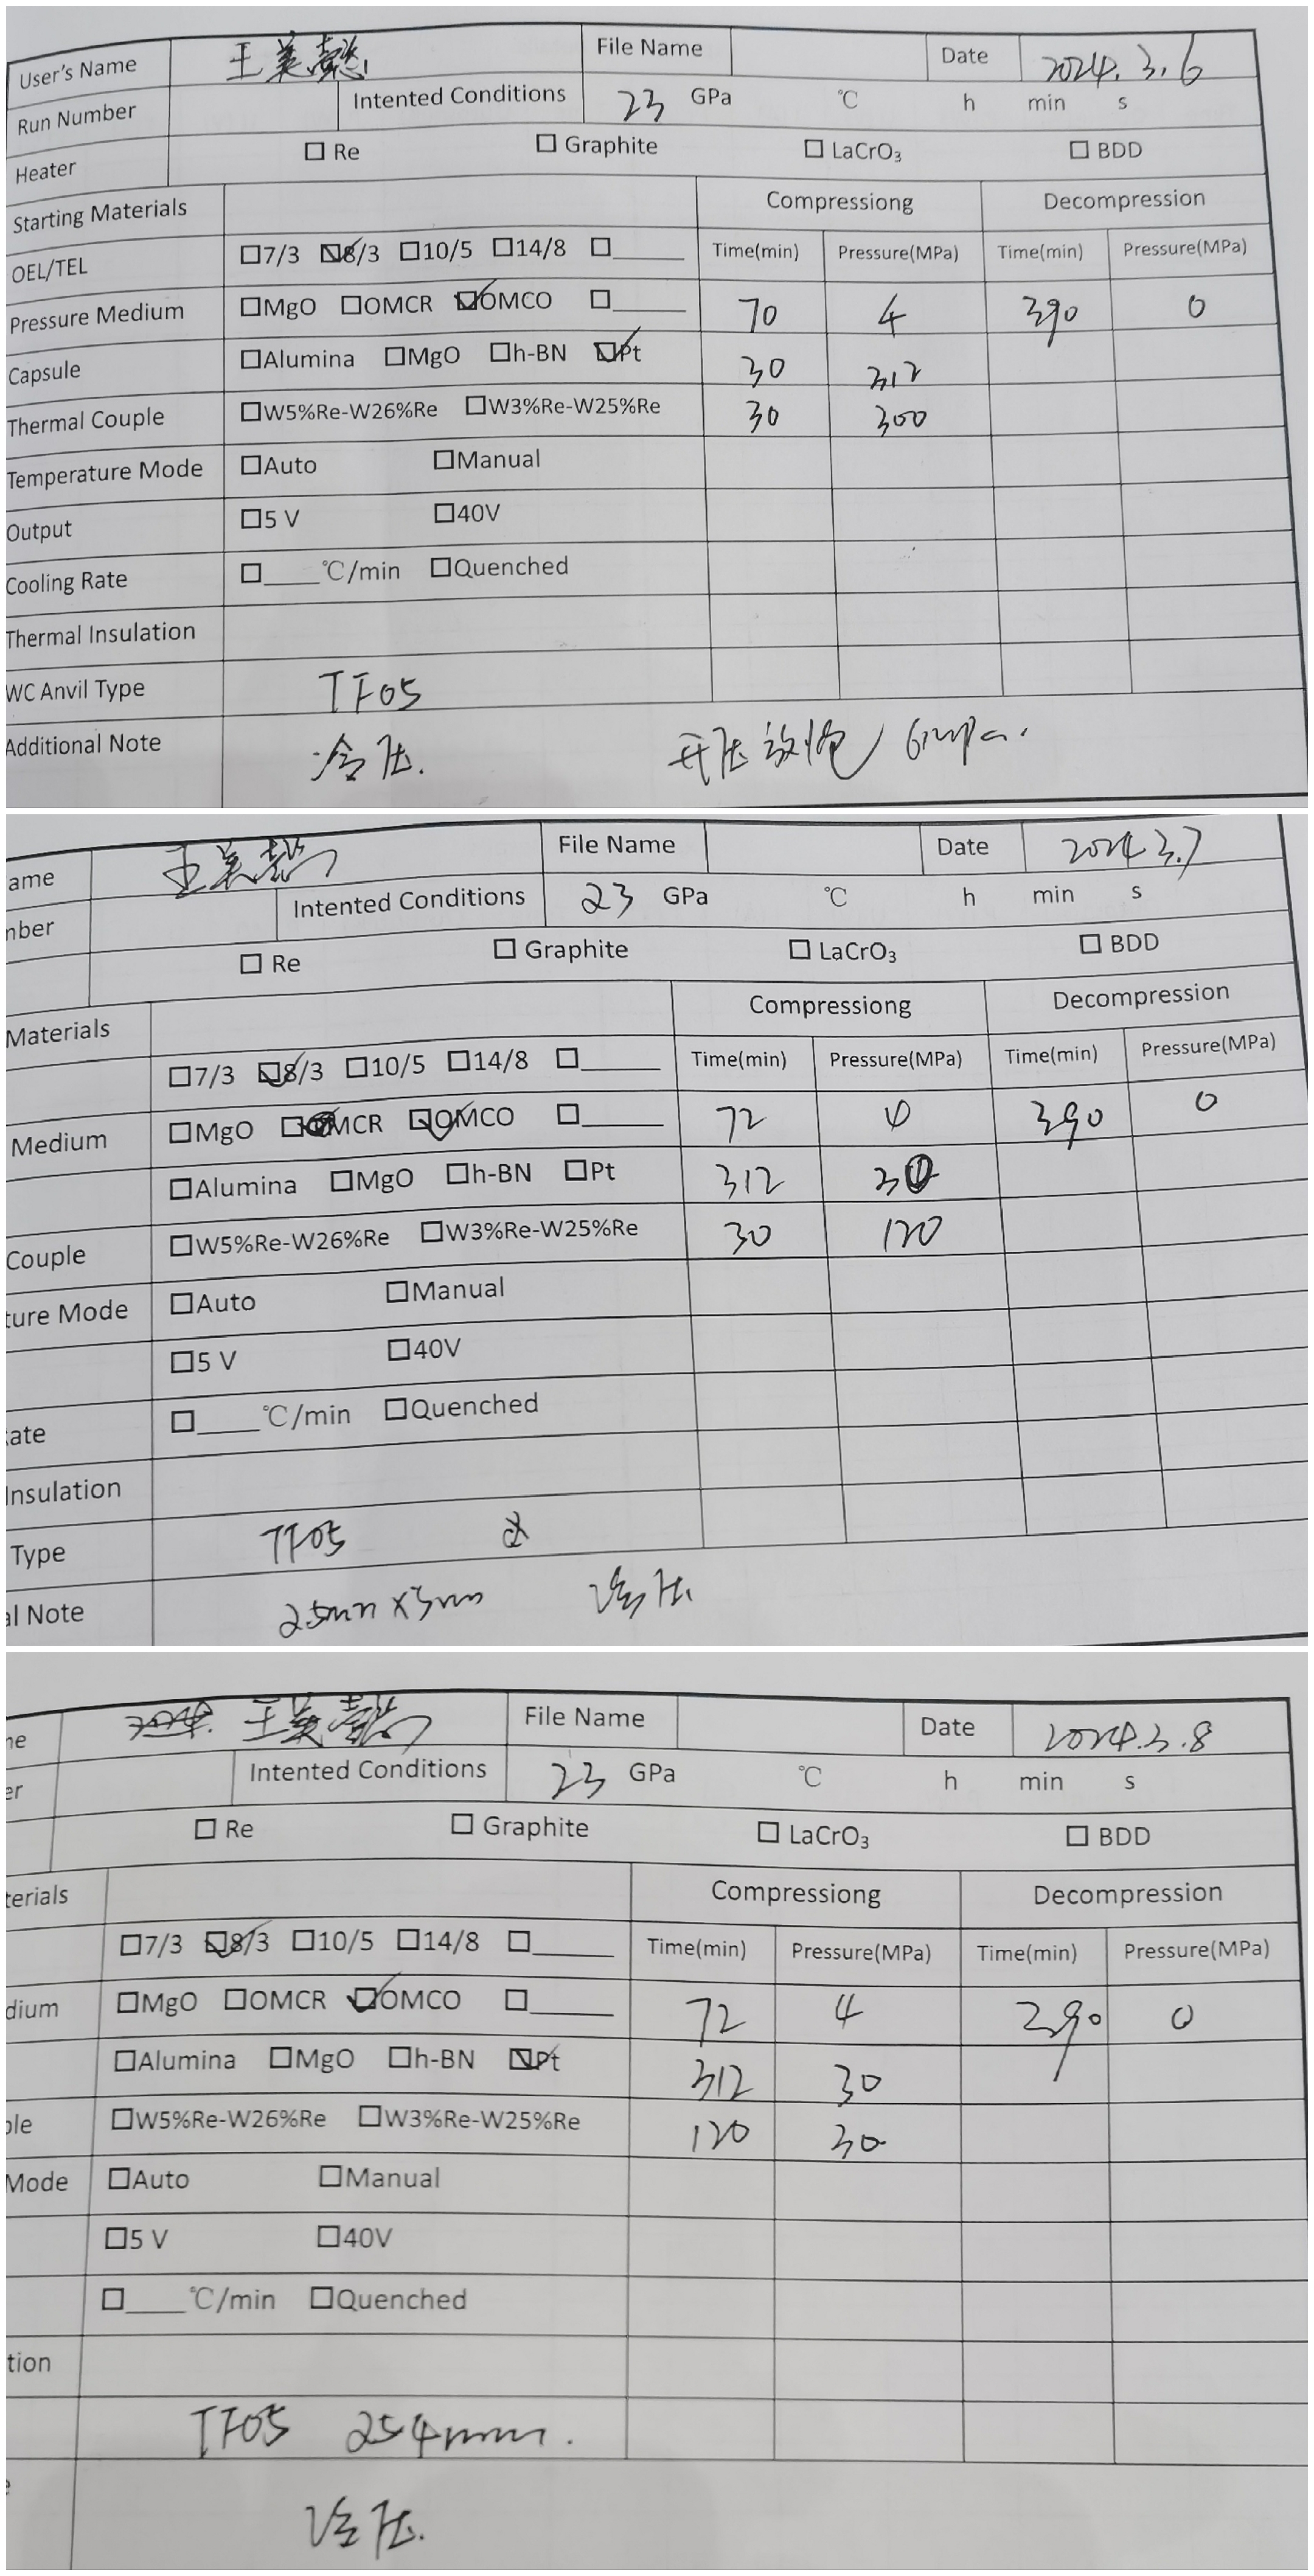 User's Name 王美懿 File Name Date 2024.3.6
Run Number Intented Conditions 23 GPa ℃ h min s
Heater □ Re □ Graphite □ LaCrO₃ □ BDD
Starting Materials Compressiong Decompression
OEL/TEL □7/3 ☑8/3 □10/5 □14/8 □____ Time(min) Pressure(MPa) Time(min) Pressure(MPa)
Pressure Medium □MgO □OMCR ☑OMCO □____ 70 4 390 0
Capsule □Alumina □MgO □h-BN ☑Pt 30 312
Thermal Couple □W5%Re-W26%Re □W3%Re-W25%Re 30 300
Temperature Mode □Auto □Manual
Output □5 V □40V
Cooling Rate □____℃/min □Quenched
Thermal Insulation
WC Anvil Type TF05
Additional Note 冷压. 升压放炮
ame 王美懿 File Name Date 2024 3.7
mber Intented Conditions 23 GPa ℃ h min s
□ Re □ Graphite □ LaCrO₃ □ BDD
Materials Compressiong Decompression
□7/3 ☑8/3 □10/5 □14/8 □____ Time(min) Pressure(MPa) Time(min) Pressure(MPa)
Medium □MgO □OMCR ☑OMCO □____ 72 4 390 0
□Alumina □MgO □h-BN □Pt 312 30
Couple □W5%Re-W26%Re □W3%Re-W25%Re 30 120
ture Mode □Auto □Manual
□5 V □40V
ate □____℃/min □Quenched
Insulation
Type TF05
al Note 25mm×3mm 冷压.
ne 王美懿 File Name Date 2024.3.8
er Intented Conditions 23 GPa ℃ h min s
□ Re □ Graphite □ LaCrO₃ □ BDD
terials Compressiong Decompression
□7/3 ☑8/3 □10/5 □14/8 □____ Time(min) Pressure(MPa) Time(min) Pressure(MPa)
dium □MgO □OMCR ☑OMCO □____ 72 4 390 0
□Alumina □MgO □h-BN ☑Pt 312 30
ple □W5%Re-W26%Re □W3%Re-W25%Re 120 30
Mode □Auto □Manual
□5 V □40V
□____℃/min □Quenched
tion
TF05 254mm.
e 冷压.